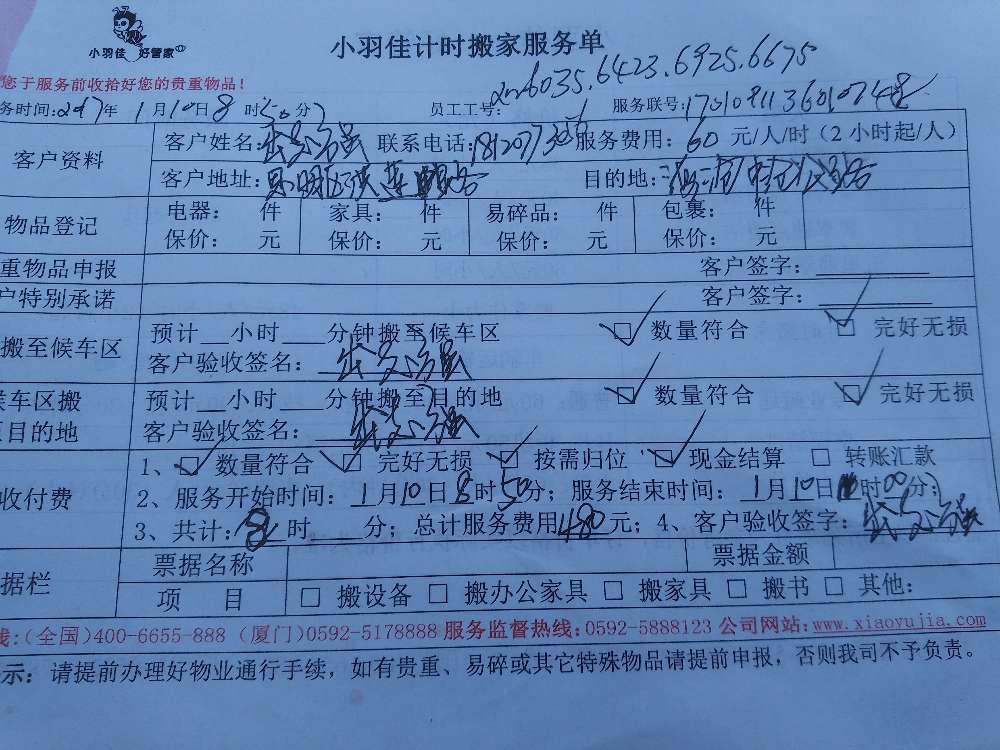 小羽佳 好管家
小羽佳计时搬家服务单
您于服务前收拾好您的贵重物品！
6035.6423.6925.6675
务时间：2017年 1月10日8时50分 员工工号： 服务联号：
客户资料
客户姓名： 联系电话： 服务费用：60 元/人/时（2小时起/人）
客户地址： 目的地：
物品登记
电器： 件 家具： 件 易碎品： 件 包裹： 件
保价： 元 保价： 元 保价： 元 保价： 元
重物品申报 客户签字：
户特别承诺 客户签字：
搬至候车区
预计__小时___分钟搬至候车区 ☑ 数量符合 ☑ 完好无损
客户验收签名：
候车区搬
目的地
预计__小时___分钟搬至目的地 ☑ 数量符合 ☑ 完好无损
客户验收签名：
收付费
1、☑ 数量符合 ☑ 完好无损 ☑ 按需归位 ☑ 现金结算 □ 转账汇款
2、服务开始时间：1月10日8时50分；服务结束时间：1月10日 时00分；
3、共计：8时___分；总计服务费用480元；4、客户验收签字：
据栏
票据名称 票据金额
项 目 □ 搬设备 □ 搬办公家具 □ 搬家具 □ 搬书 □ 其他：
线：(全国)400-6655-888 (厦门)0592-5178888 服务监督热线：0592-5888123 公司网站：www.xiaoyujia.com
示：请提前办理好物业通行手续，如有贵重、易碎或其它特殊物品请提前申报，否则我司不予负责。